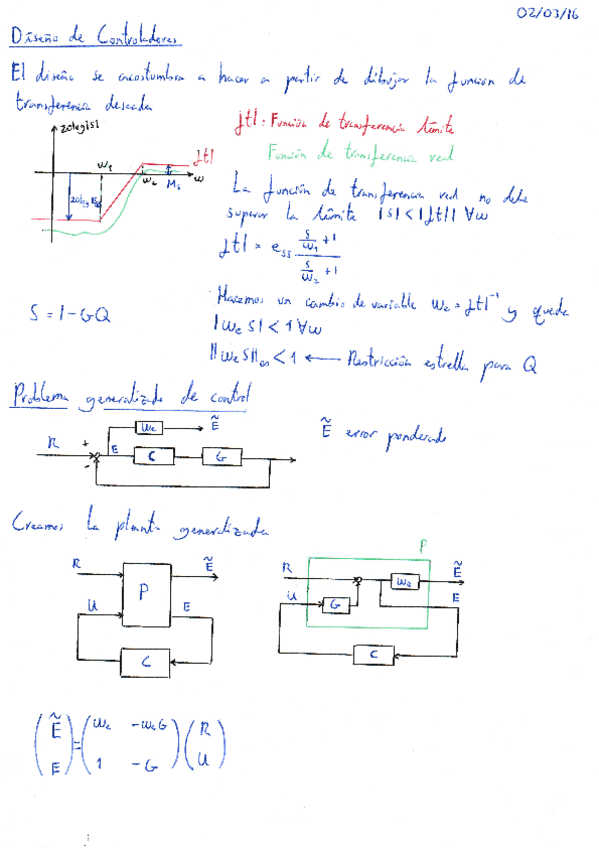 02/03/16
Diseño de Controladores
El diseño se acostumbra a hacer a partir de dibujar la funcion de
transferencia deseada
20log|S|
ftl
ω1
ω2
ω
Ms
ftl: Función de transferencia límite
Función de transferencia real
La función de transferencia real no debe
superar la límite |S|<|ftl| ∀ω
ftl = ess (s/ω1 + 1)/(s/ω2 + 1)
Hacemos un cambio de variable ωe = ftl⁻¹ y queda
S = 1-GQ
|ωe S| < 1 ∀ω
||ωe S||∞ < 1 ← Restricción estrella para Q
Problema generalizado de control
R + - E ωe Ẽ C G
Ẽ error ponderado
Creamos la planta generalizada
R U P Ẽ E C
P R U G ωe Ẽ E C
(Ẽ E) = (ωe -ωeG 1 -G) (R U)